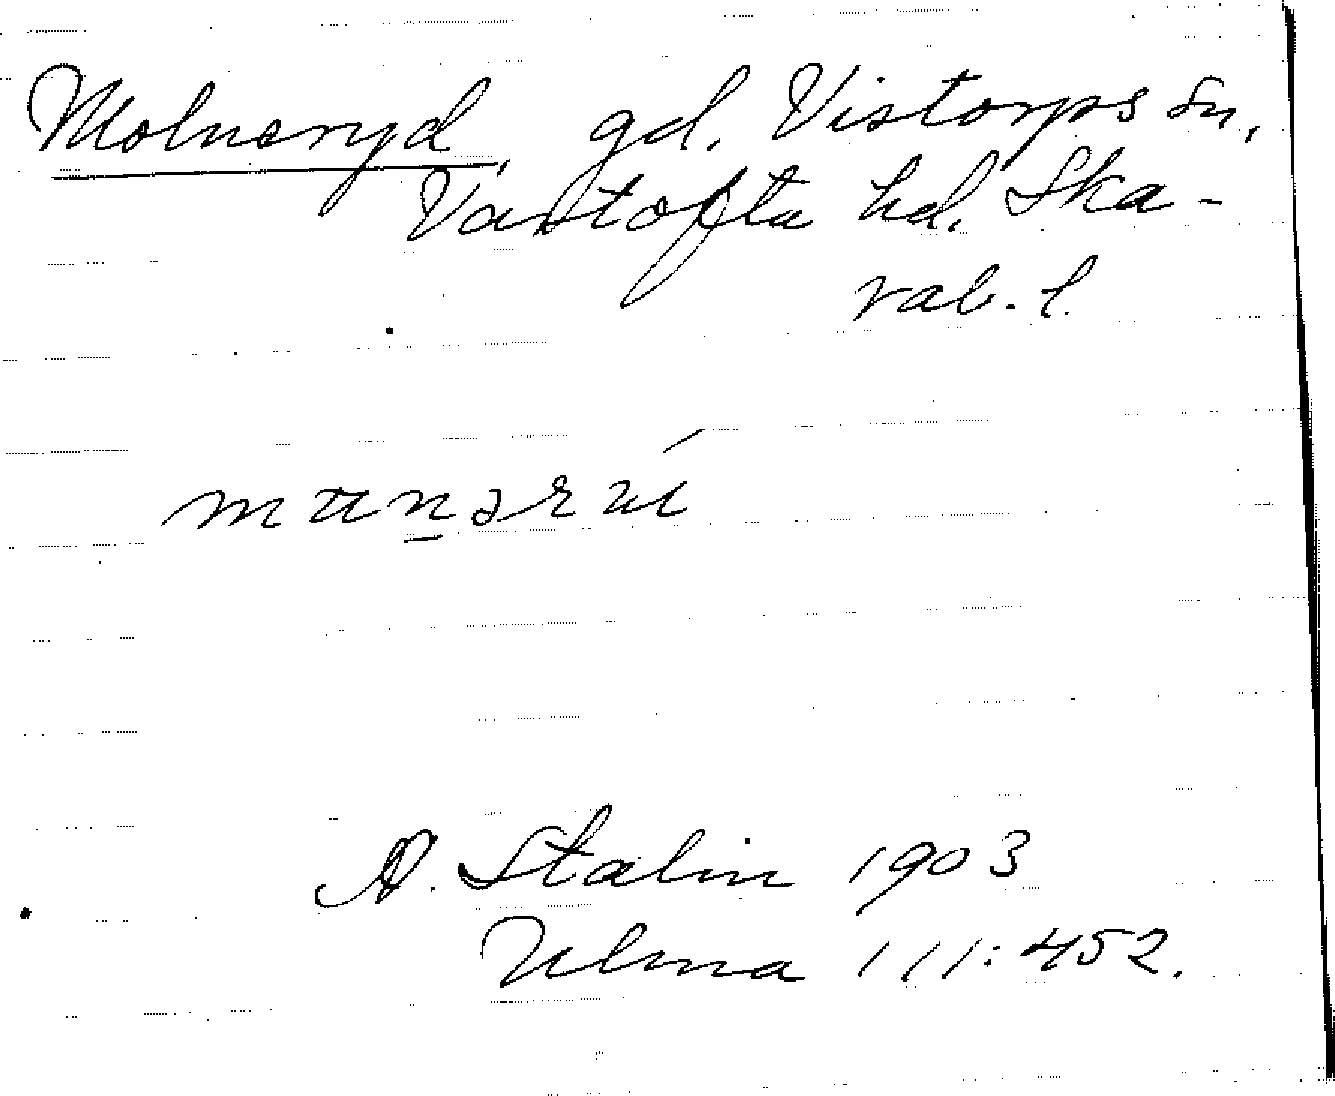 Molneryd, gd. Vistorps sn,
Vartofta hd. Ska-
rab. l.
A. Stalin 1903
Ulma 111:452.